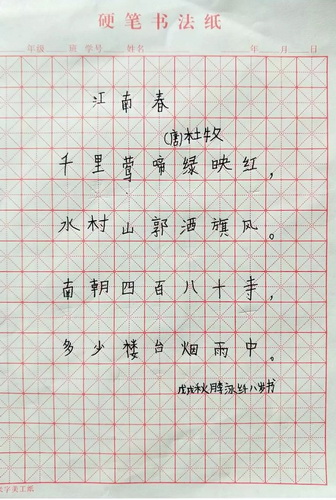 硬笔书法纸
年级 班 学号 姓名 年 月 日
江南春
(唐)杜牧
千里莺啼绿映红,
水村山郭酒旗风。
南朝四百八十寺,
多少楼台烟雨中。
戊戌秋 八岁书
文字美工纸